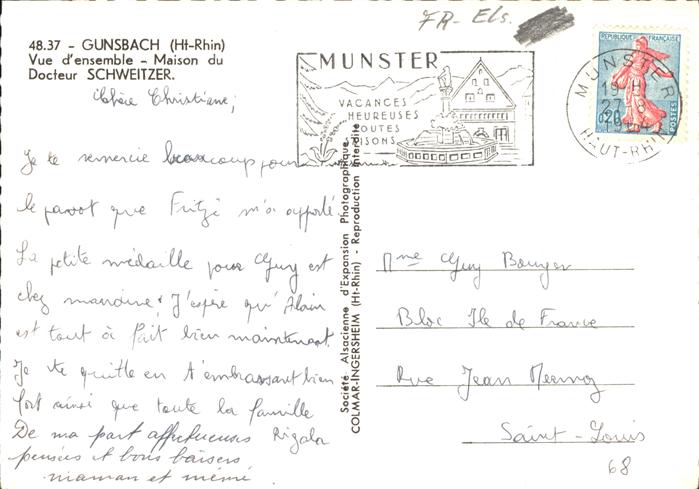 FR - Els.
48.37 - GUNSBACH (Ht-Rhin)
Vue d'ensemble - Maison du
Docteur SCHWEITZER.
MUNSTER
VACANCES
HEUREUSES
TOUTES
SAISONS
MUNSTER
19 H
27 - 8
HAUT-RHIN
REPUBLIQUE FRANÇAISE
0,20
POSTES
Chère Christiane,
Je te remercie beaucoup pour
le pavot que Fritzi m'a apporté
La petite médaille pour Guy est
chez mandine. J'espère qu'Alain
est tout à fait bien maintenant.
Je te quitte en t'embrassant bien
fort ainsi que toute la famille
De ma part affectueuses Rigala
pensées et bons baisers
maman et mémé.
Société Alsacienne d'Expansion Photographique
COLMAR-INGERSHEIM (Ht-Rhin) - Reproduction Interdite
Mme Guy
Bloc Ile de France
Rue Jean Mermoz
Saint-Louis
68